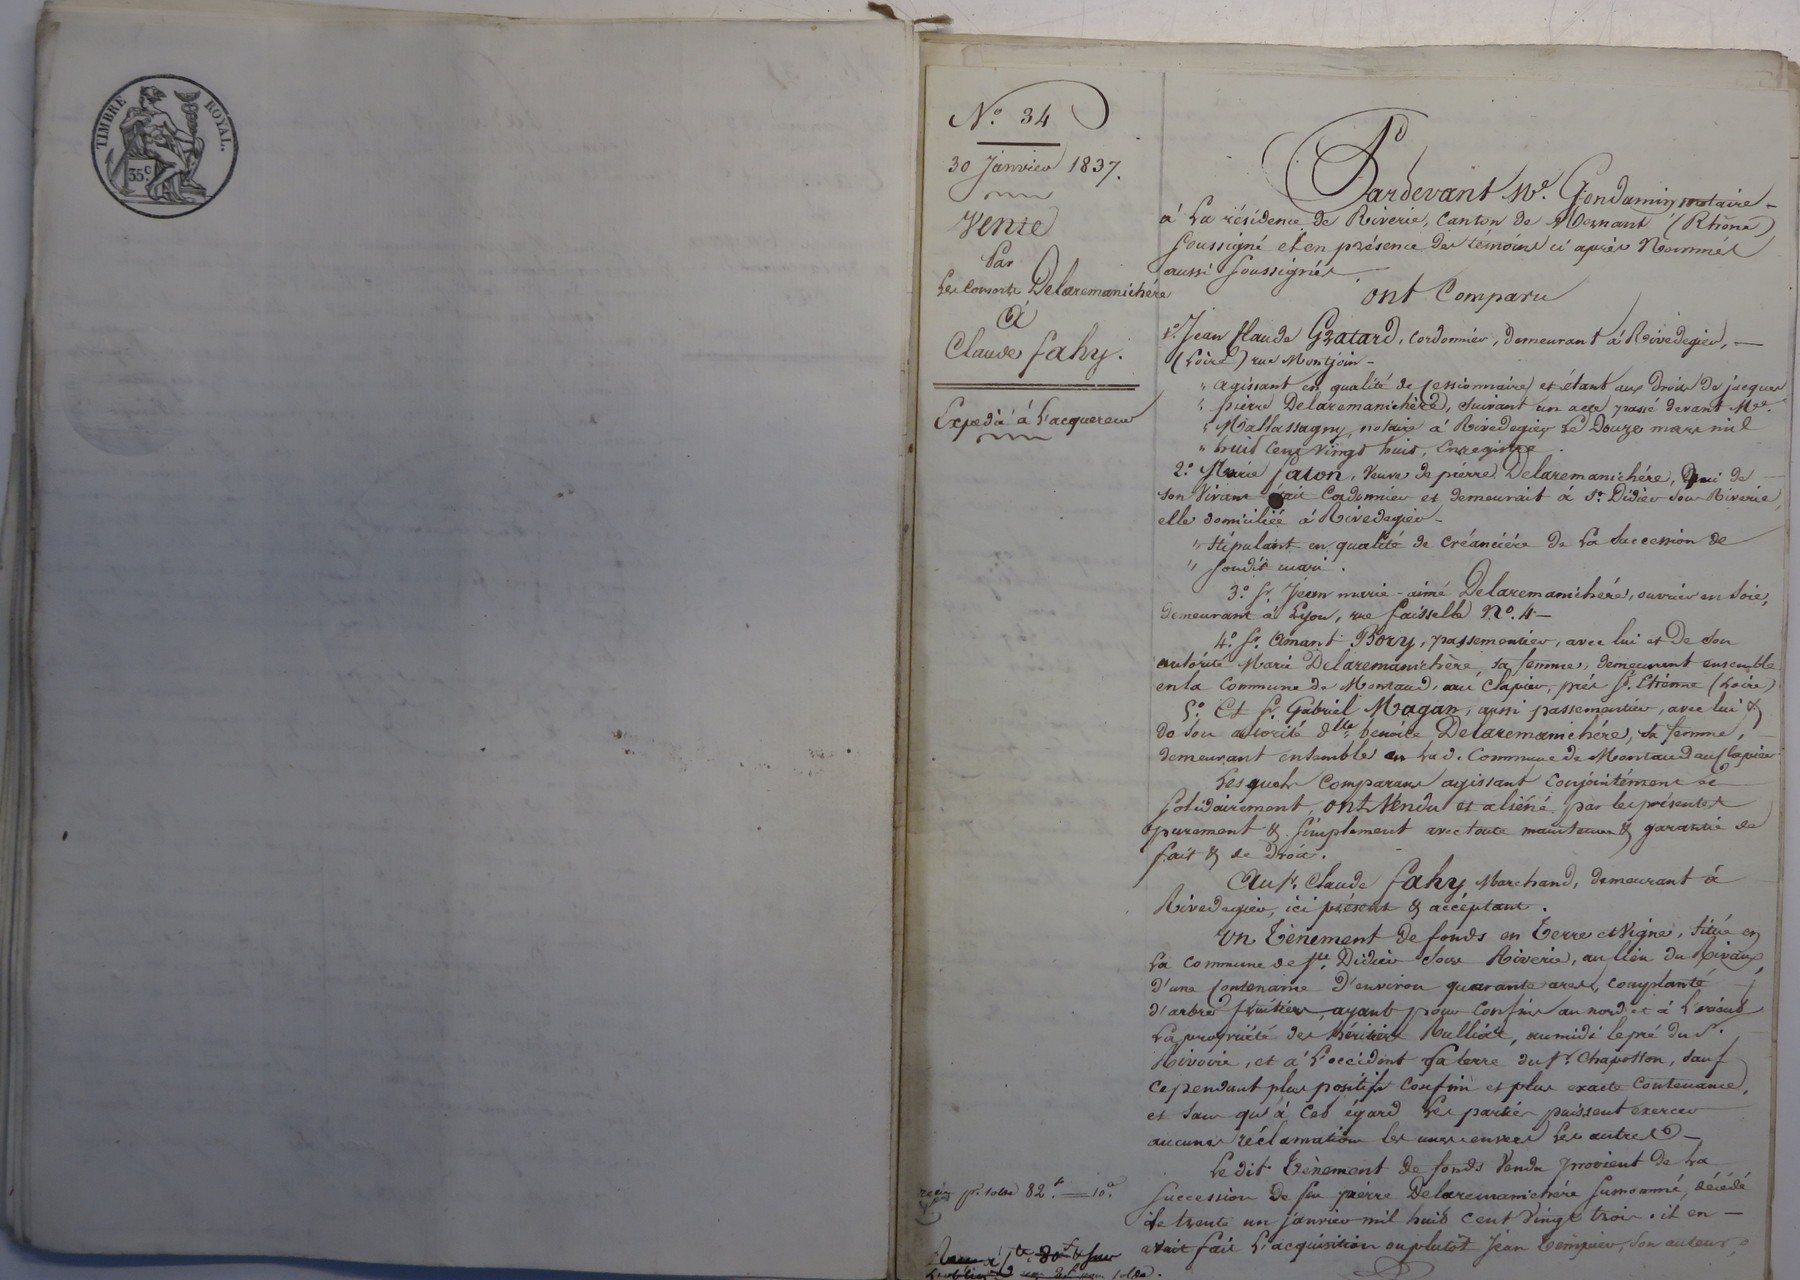 TIMBRE ROYAL.
35c
N.° 34
30 Janvier 1837.
Vente
Par
Les Consorts Delaremanichére
à
Claude fahy.
Expédié à l'acquereur
reçu pr. solde 82.f 10.c
solde.
Pardevant Me. Gondamin notaire
à la résidence de Riverie, canton de Mornant (Rhône)
soussigné et en présence des témoins ci après Nommés
aussi soussignés
ont Comparu
1.° Jean Claude Gratard, cordonnier, demeurant à Rivedegier,
(Loire) rue Montjoin
" agissant en qualité de cessionnaire et étant aux droits de jacques
" pierre Delaremanichére, suivant un acte passé devant Me.
" notaire à Rivedegier Le Douze mars mil
" huit cent Vingt huit, enregistré
2.° Marie faton, Veuve de pierre Delaremanichére, qui de
son Vivant était Cordonnier et demeurait à St. Didier sous Riverie,
elle domiciliée à Rivedegier
" Stipulant en qualité de créancière de la succession de
" soudit mari.
3.° Sr. Jean marie-aimé Delaremanichére, ouvrier en soie,
demeurant à Lyon, rue N.° 4
4.° Sr. Amant Bory, passementier, avec lui et De son
autorité Marie Delaremanichère, sa femme, demeurant ensemble
en la Commune de Montaud, au Clapier, près St. Etienne (Loire)
5.° Et Sr. Gabriel Magan, aussi passementier, avec lui &
de son autorité dlle. benoite Delaremanichére, sa femme,
demeurant ensemble en la d. Commune de Montaud au Clapier
Lesquels Comparans agissant Conjointement et
solidairement, ont Vendu et aliéné, par les présentes
purement & simplement avec toute maintenue & garantie de
fait & de Droit.
Au Sr. Claude fahy, Marchand, demeurant à
Rivedegier, ici présent & acceptant.
Un Tènement de fonds en Terre et Vigne, situé en
la commune de St. Didier sous Riverie, au lieu du Rivaux,
d'une Contenance D'environ quarante ares, complanté
d'arbres fruitiers, ayant pour Confins au nord et à l'
la propriété des héritiers Rulliat, au midi le pré du Sr.
Rivoire, et à l'occident la terre du Sr. Chaposton, sauf
cependant plus positifs Confins et plus exacte Contenance,
et sans qu'à Cet égard les parties puissent exercer
aucunes réclamations les unes envers les autres
Le dit Tènement de fonds Vendu provient de la
succession de feu pierre Delaremanichére Surnommé, décédé
le trente un janvier mil huit cent Vingt trois. il en
avait fait l'acquisition ou plutôt Jean son auteur,